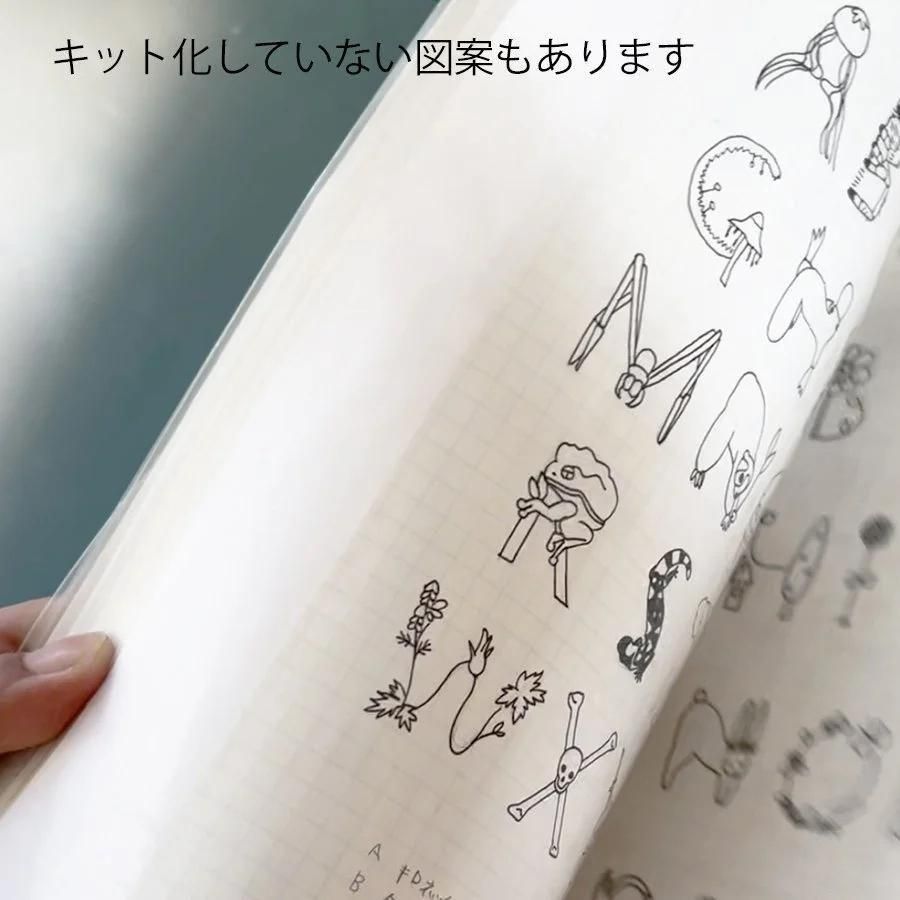 キット化していない図案もあります
A キロネッ
B